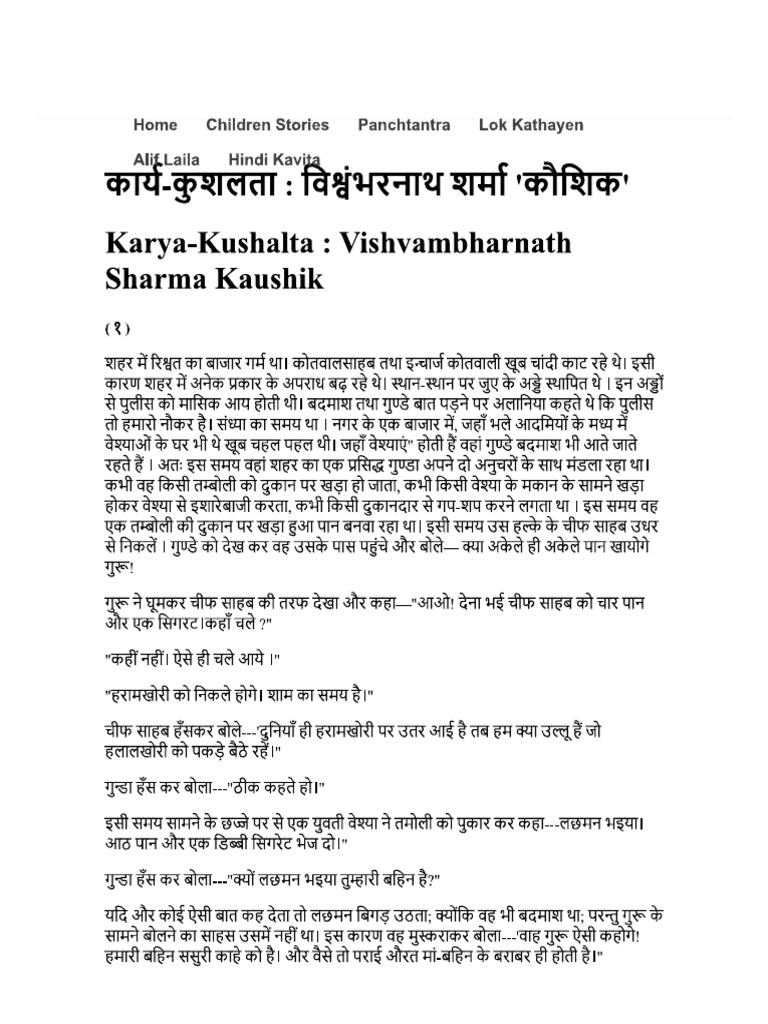 Home Children Stories Panchtantra Lok Kathayen
Alif Laila Hindi Kavita
कार्य-कुशलता : विश्वंभरनाथ शर्मा 'कौशिक'
Karya-Kushalta : Vishvambharnath
Sharma Kaushik
( १ )
शहर में रिश्वत का बाजार गर्म था। कोतवालसाहब तथा इन्चार्ज कोतवाली खूब चांदी काट रहे थे। इसी
कारण शहर में अनेक प्रकार के अपराध बढ़ रहे थे। स्थान-स्थान पर जुए के अड्डे स्थापित थे । इन अड्डों
से पुलीस को मासिक आय होती थी। बदमाश तथा गुण्डे बात पड़ने पर अलानिया कहते थे कि पुलीस
तो हमारो नौकर है। संध्या का समय था । नगर के एक बाजार में, जहाँ भले आदमियों के मध्य में
वेश्याओं के घर भी थे खूब चहल पहल थी। जहाँ वेश्याएं" होती हैं वहां गुण्डे बदमाश भी आते जाते
रहते हैं । अतः इस समय वहां शहर का एक प्रसिद्ध गुण्डा अपने दो अनुचरों के साथ मंडला रहा था।
कभी वह किसी तम्बोली को दुकान पर खड़ा हो जाता, कभी किसी वेश्या के मकान के सामने खड़ा
होकर वेश्या से इशारेबाजी करता, कभी किसी दुकानदार से गप-शप करने लगता था । इस समय वह
एक तम्बोली की दुकान पर खड़ा हुआ पान बनवा रहा था। इसी समय उस हल्के के चीफ साहब उधर
से निकलें । गुण्डे को देख कर वह उसके पास पहुंचे और बोले— क्या अकेले ही अकेले पान खायोगे
गुरू!
गुरू ने घूमकर चीफ साहब की तरफ देखा और कहा—"आओ! देना भई चीफ साहब को चार पान
और एक सिगरट।कहाँ चले ?"
"कहीं नहीं। ऐसे ही चले आये ।"
"हरामखोरी को निकले होगे। शाम का समय है।"
चीफ साहब हँसकर बोले---'दुनियाँ ही हरामखोरी पर उतर आई है तब हम क्या उल्लू हैं जो
हलालखोरी को पकड़े बैठे रहें।"
गुन्डा हँस कर बोला---"ठीक कहते हो।"
इसी समय सामने के छज्जे पर से एक युवती वेश्या ने तमोली को पुकार कर कहा---लछमन भइया।
आठ पान और एक डिब्बी सिगरेट भेज दो।"
गुन्डा हँस कर बोला---"क्यों लछमन भइया तुम्हारी बहिन है?"
यदि और कोई ऐसी बात कह देता तो लछमन बिगड़ उठता; क्योंकि वह भी बदमाश था; परन्तु गुरू के
सामने बोलने का साहस उसमें नहीं था। इस कारण वह मुस्कराकर बोला---'वाह गुरू ऐसी कहोगे!
हमारी बहिन ससुरी काहे को है। और वैसे तो पराई औरत मां-बहिन के बराबर ही होती है।"